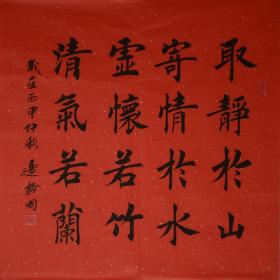 取靜於山
寄情於水
靈懷若竹
清氣若蘭
歲在丙申仲秋